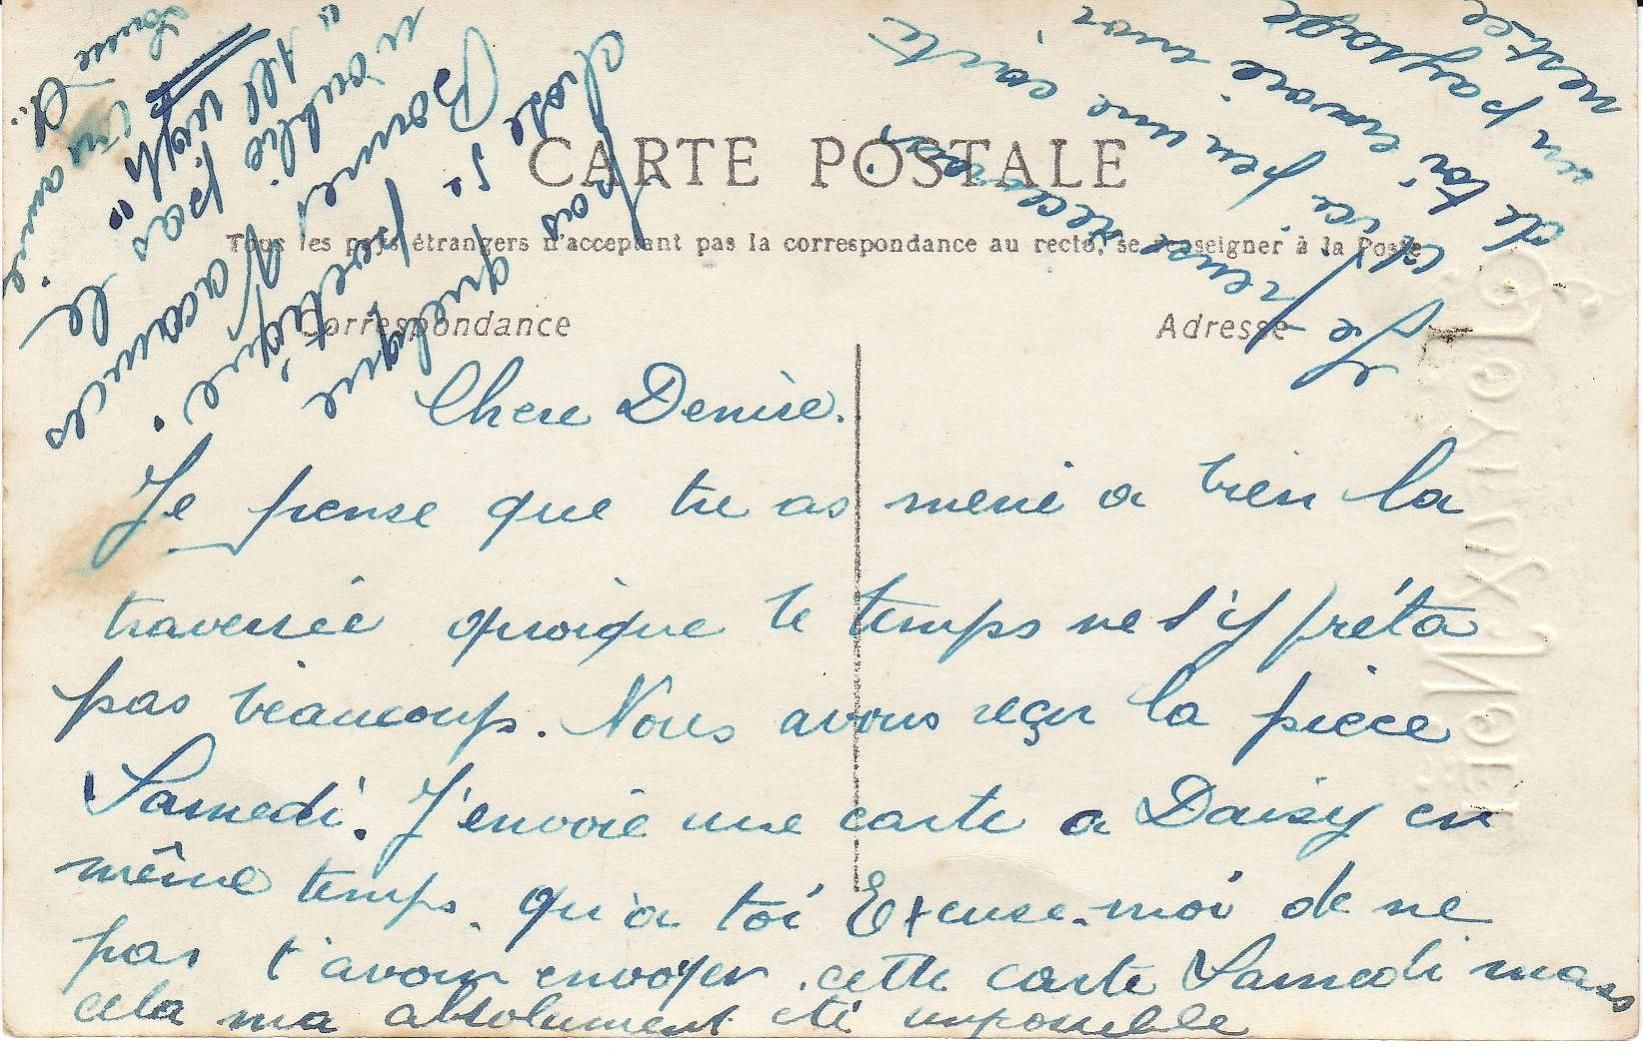 CARTE POSTALE
Tous les pays étrangers n'acceptant pas la correspondance au recto, se renseigner à la Poste
Correspondance
Adresse
Chere Denise.
Je pense que tu as mené a bien la
traversée quoique le temps ne s'y prêta
pas beaucoup. Nous avons reçu la pièce
Samedi. J'envoie une carte a Daisy en
même temps. qu'a toi Excuse-moi de ne
pas t'avoir envoyer cette carte Samedi mais
cela ma absolument été impossible
Je pense recevoir
d'ici peu une carte
de toi envoie moi
un paysage
nest ce
pas quelque
chose de poetique.
Bonnes Vacances
n'oublie pas le
"All right"
amie
Joyeux Noël